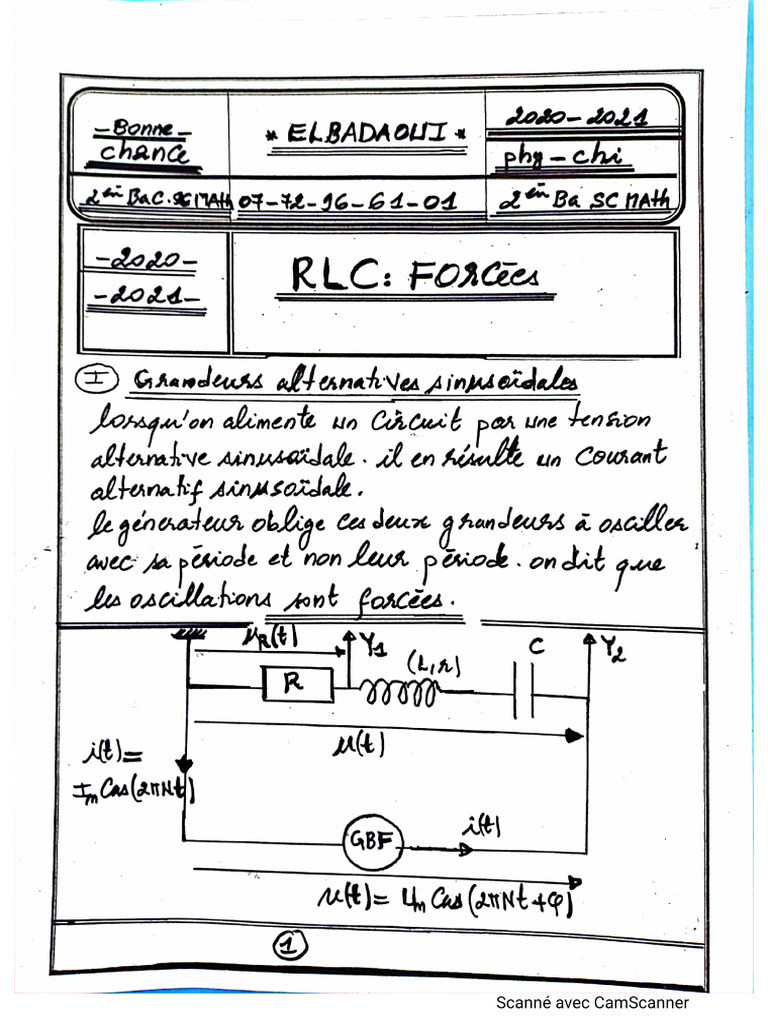 - Bonne -
chance
* ELBADAOUI *
2020-2021
phy-chi
2èm BaC.SC MATH
07-72-96-61-01
2èm Ba SC MATH
-2020-
-2021-
RLC: FORcées
I Grandeurs alternatives sinusoïdales
lorsqu'on alimente un circuit par une tension
alternative sinusoïdale. il en résulte un courant
alternatif sinusoïdale.
le génerateur oblige ces deux grandeurs à osciller
avec sa période et non leur période. on dit que
les oscillations sont forcées.
u_R(t)
Y1
(L,r)
C
Y2
R
u(t)
i(t)=
I_m Cos(2πNt)
GBF
i(t)
u(t)= U_m Cos(2πNt+φ)
1
Scanné avec CamScanner